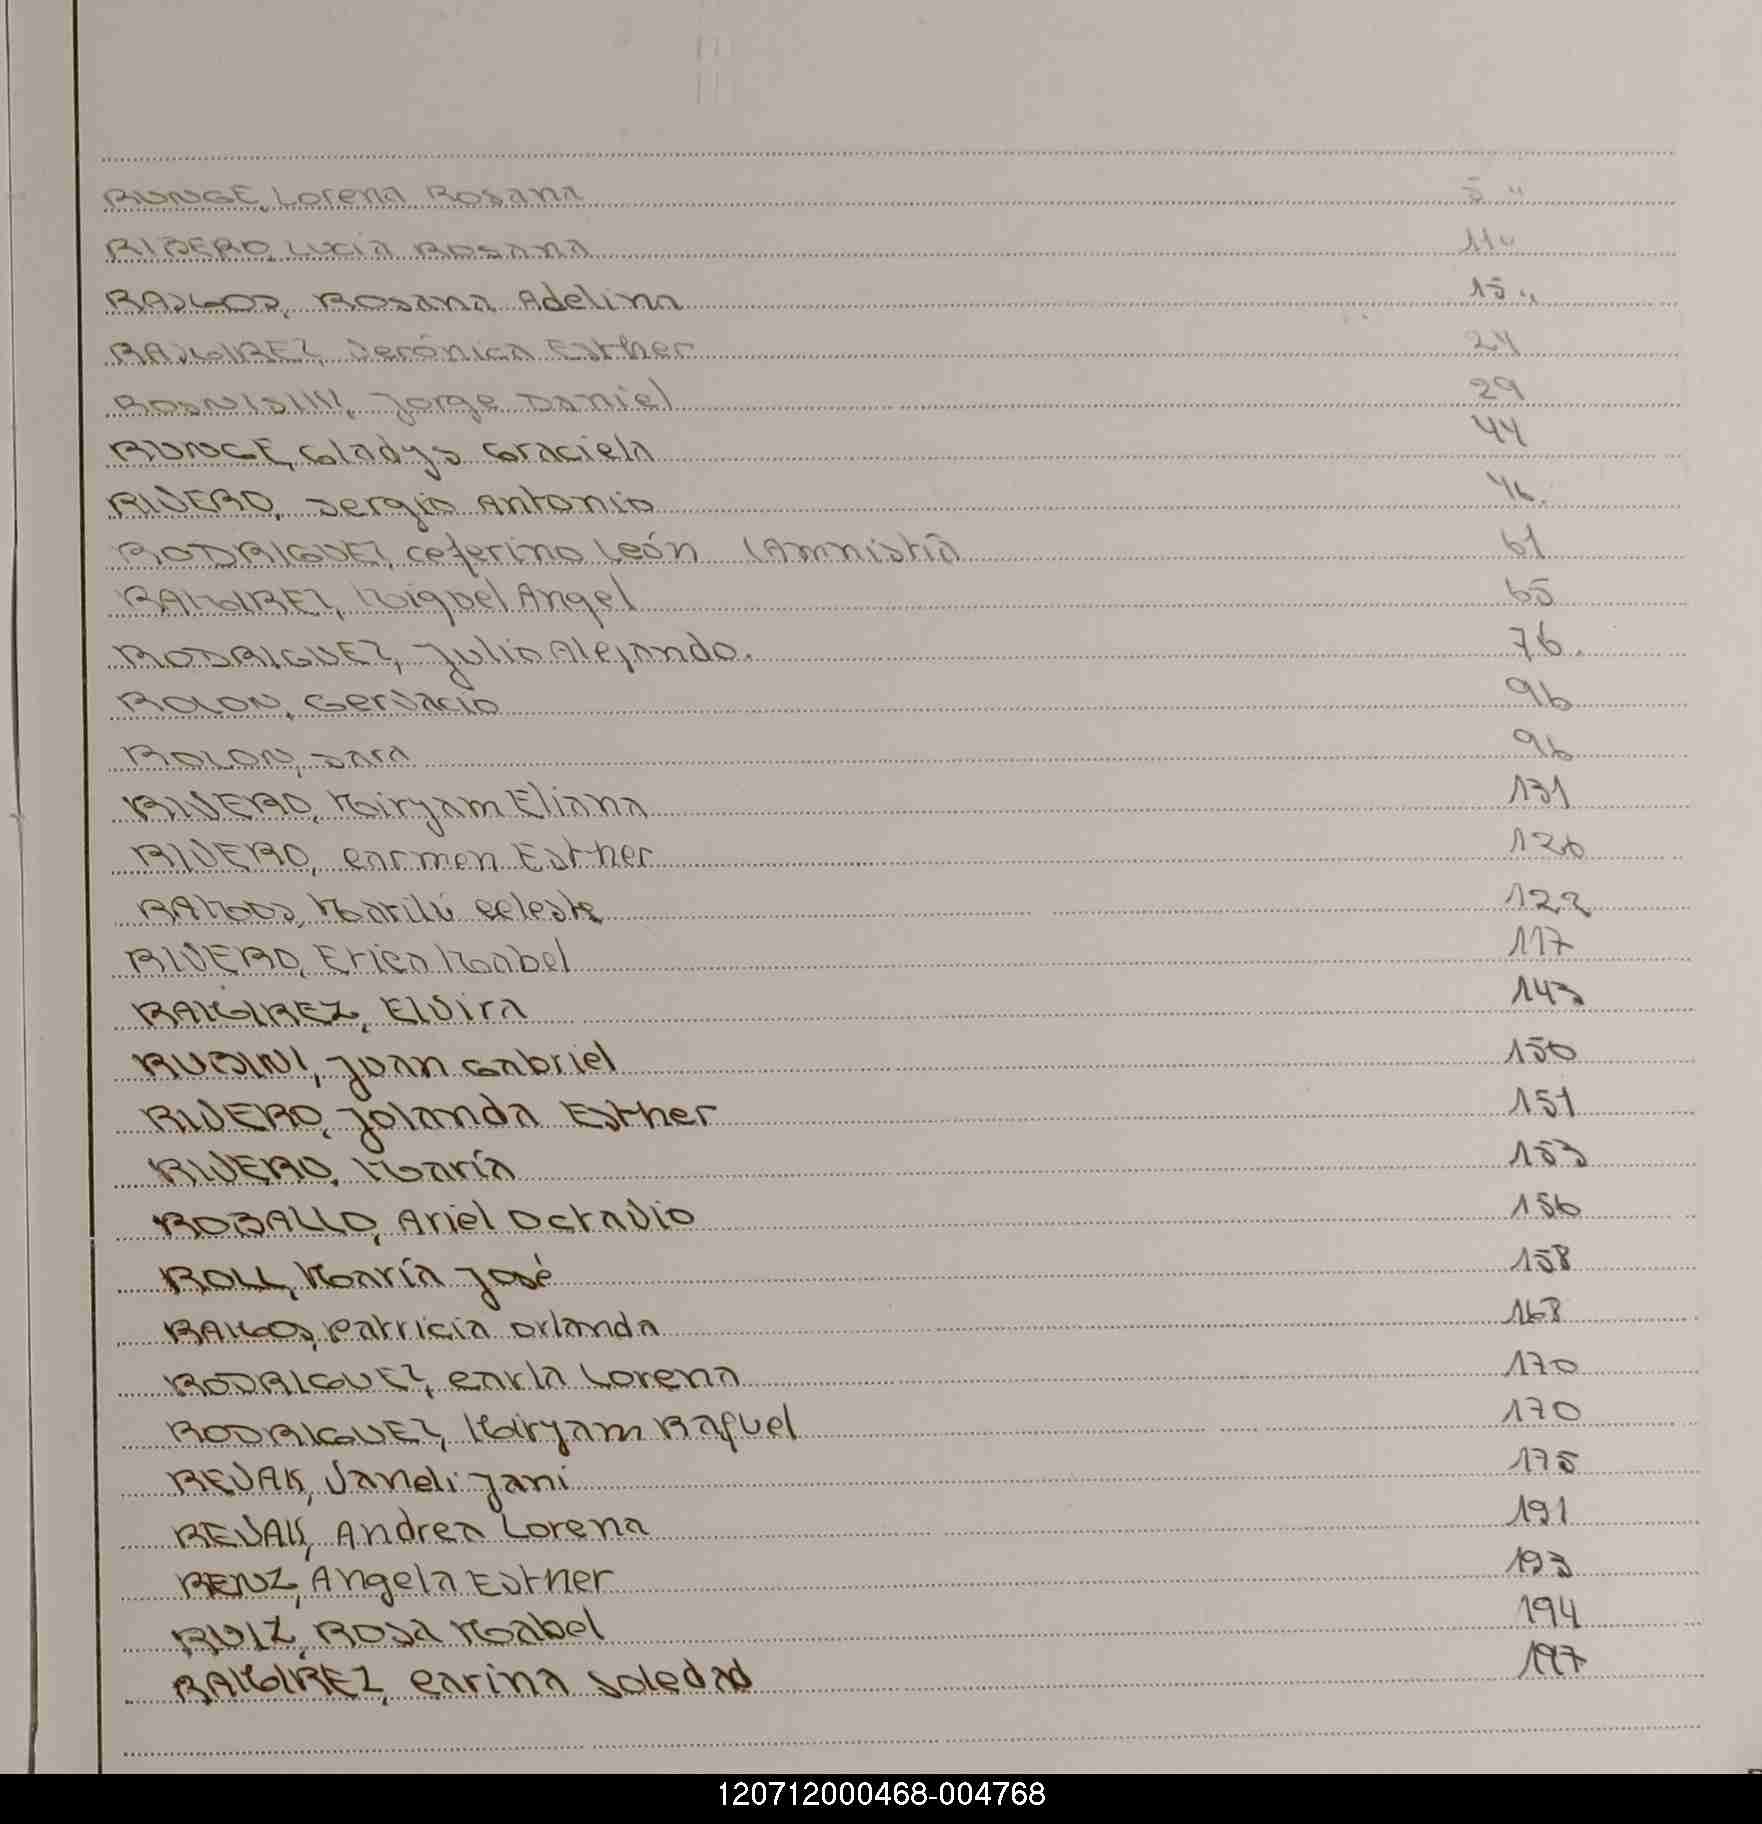 RUNGE, Lorena Rosana 5 "
RIBERO, Lucia Rosana 11 "
RAMOS, Rosana Adelina 15 "
RAMIREZ, Verónica Esther 24
Jorge Daniel 29
RUNGE, Gladys Graciela 44
RIVERO, Sergio Antonio 46.
RODRIGUEZ, Ceferino León (Amnistía 61
RAMIREZ, Miguel Angel 65
RODRIGUEZ, Julio Alejando. 76.
ROLON, Gervacio 96
ROLON, Sara 96
RIVERO, Miryam Eliana 131
RIVERO, Carmen Esther 120
RAMOS, Marilú Celeste 122
RIVERO, Erica Mabel 117
RAMIREZ, Elvira 143
RUBINI, Juan Gabriel 150
RIVERO, Jolanda Esther 151
RIVERO, María 153
ROBALLO, Ariel Octavio 156
ROLL, María José 158
RAMOS, Patricia Orlanda 168
RODRIGUEZ, Carla Lorena 170
RODRIGUEZ, Miryam Raquel 170
REVAK, Vaneli Jani 175
REVAK, Andrea Lorena 191
RENZ, Angela Esther 193
RUIZ, Rosa Mabel 194
RAMIREZ, Carina Soledad 197
120712000468-004768